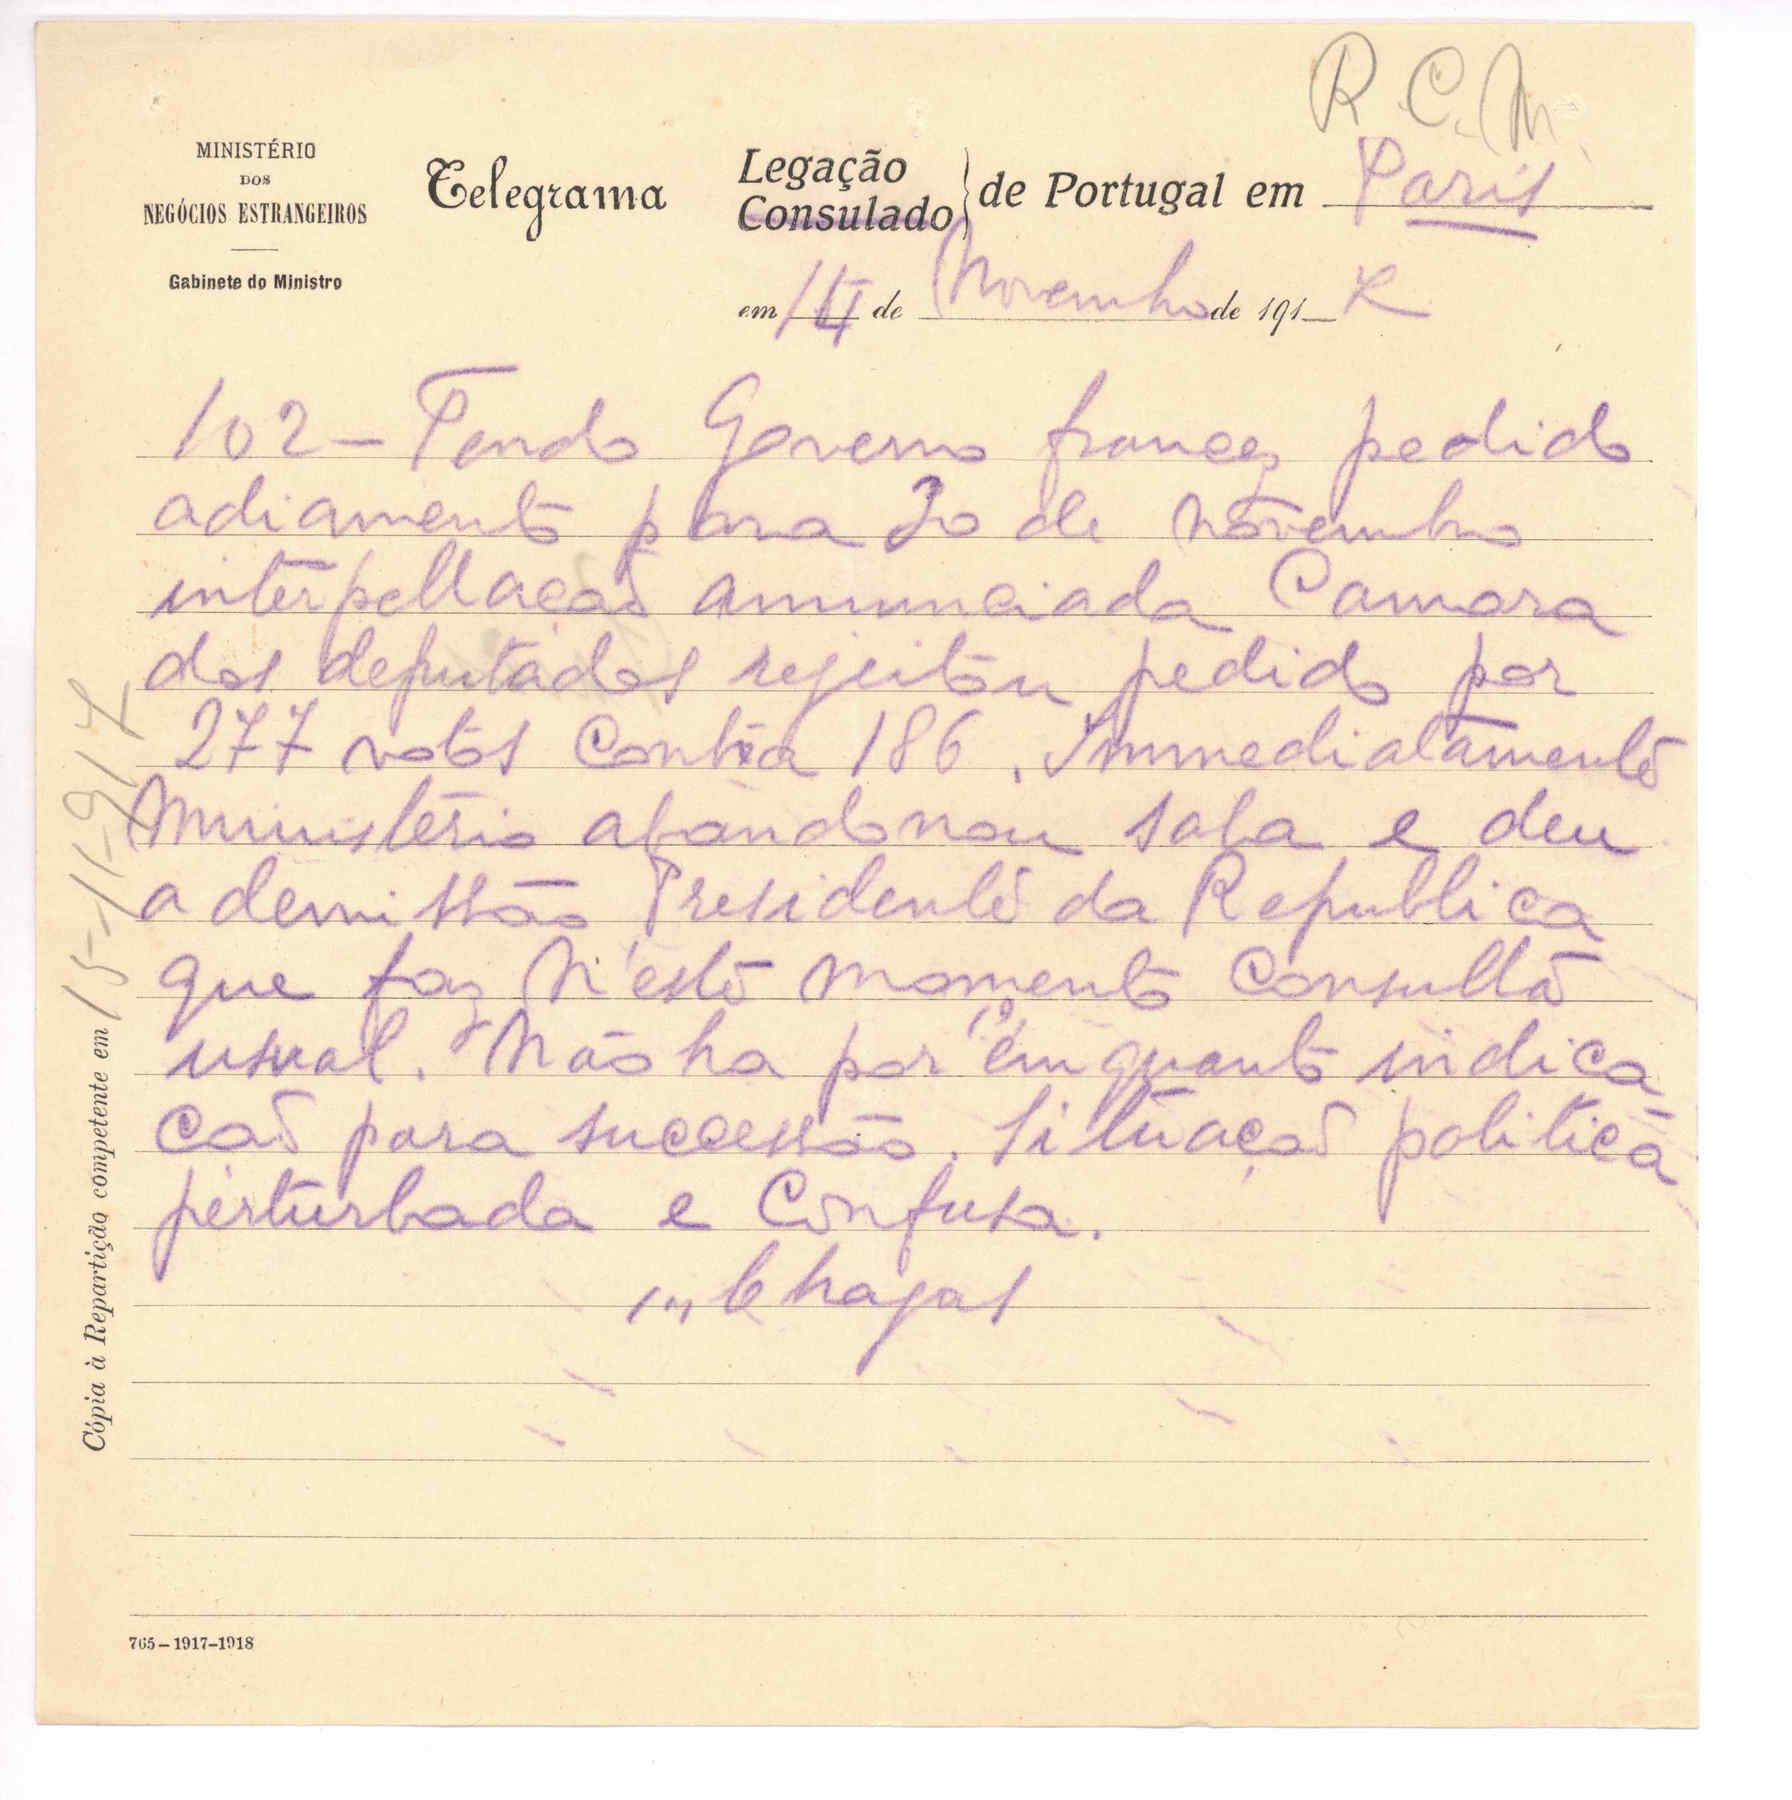 R. C. M.
MINISTÉRIO
DOS
NEGÓCIOS ESTRANGEIROS
Gabinete do Ministro
Telegrama
Legação
Consulado
de Portugal em Paris
em 14 de Novembro de 191 7
102 - Tendo Governo francez pedido
adiamento para 30 de novembro
interpellação annunciada Camara
dos deputados rejeitou pedido por
277 votos contra 186. Immediatamente
Ministerio abandonou sala e deu
a demissão Presidente da Republica
que faz n'este momento consulta
usual. Não ha por emquanto indica
cão para successão. Situação politica
perturbada e confusa.
Chagas
Cópia à Repartição competente em 15-11-917
765-1917-1918